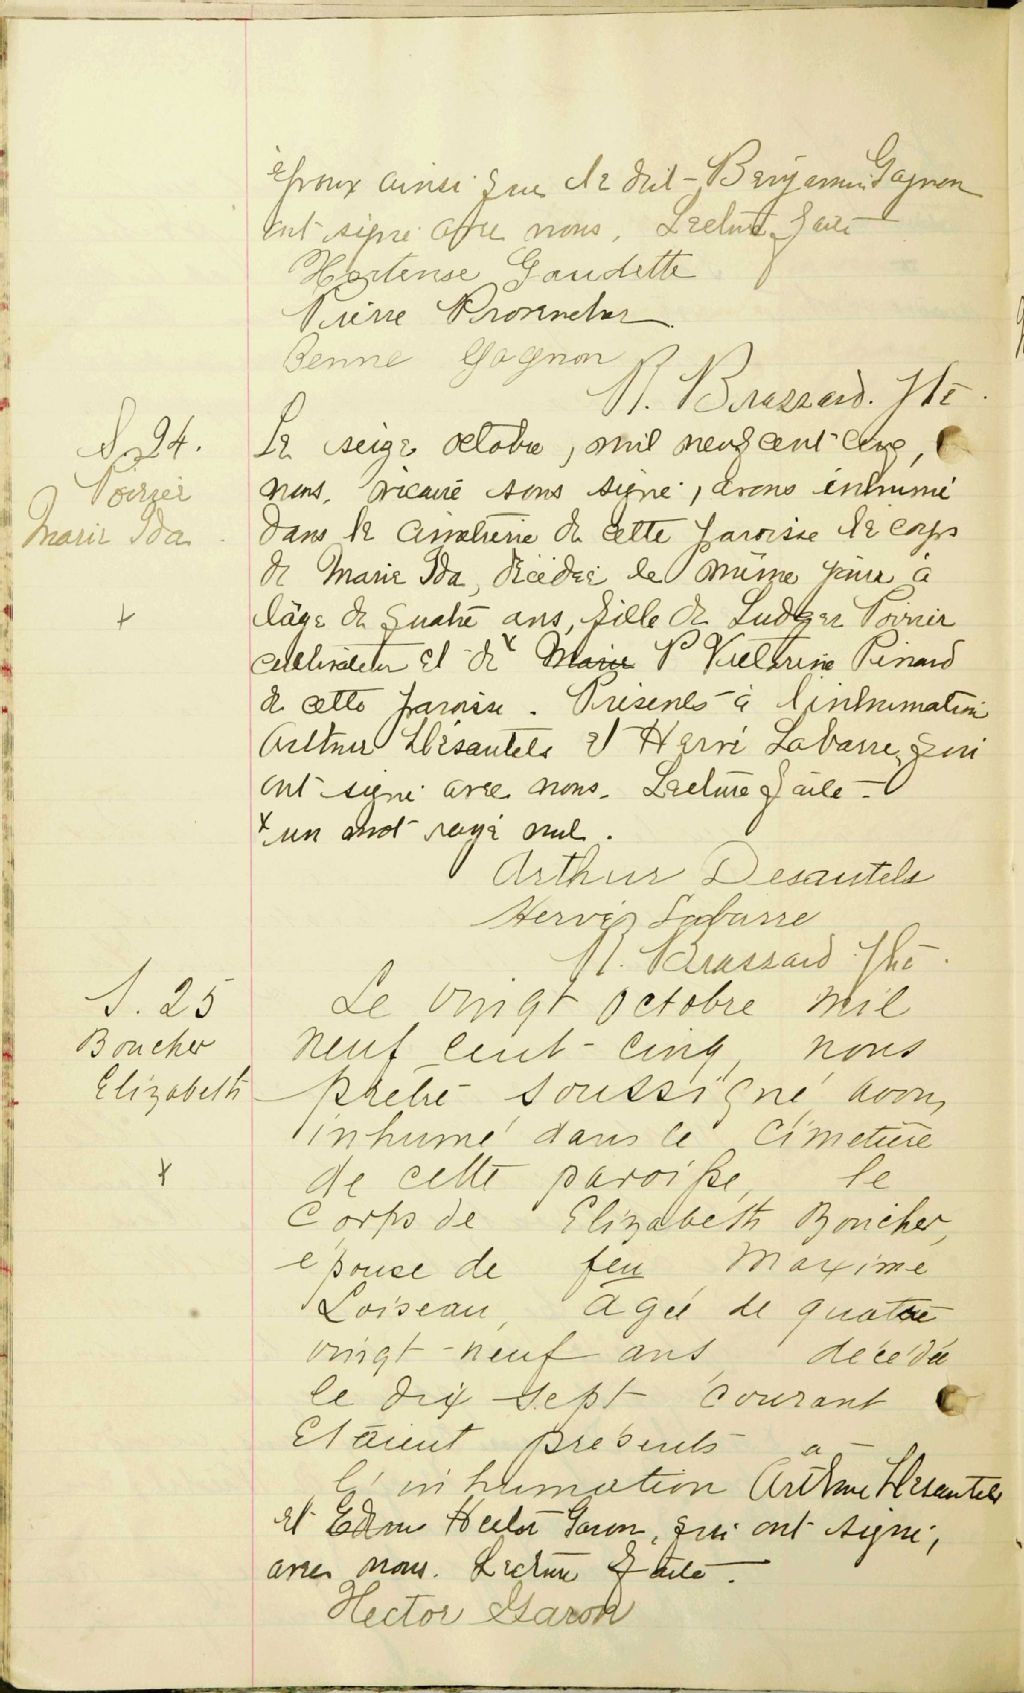 époux ainsi que le dit Benjamin Gagnon
ont signé avec nous. Lecture faite
Hortense Gaudette
Pierre Provencher
Benne Gagnon
R. Brassard. Ptre.
S. 24.
Poirier
Marie Ida
+
Le seize octobre, mil neuf cent cinq,
nous, vicaire sous signé, avons inhumé
dans le cimetière de cette paroisse le corps
de Marie Ida, décédée le même jour à
l'âge de quatre ans, fille de Ludger Poirier
cultivateur et de x Marie P Victorine Pinard
de cette paroisse. Présents à l'inhumation
Arthur Désautels et Hervé Labarre, qui
ont signé avec nous. Lecture faite -
x un mot rayé nul.
Arthur Desautels
Hervé Labarre
R. Brassard Ptre.
S. 25
Boucher
Elizabeth
+
Le vingt octobre mil
neuf cent-cinq, nous
prêtre soussigné, avons
inhumé dans le cimetière
de cette paroisse, le
corps de Elizabeth Boucher,
épouse de feu Maxime
Loiseau, agée de quatre
vingt-neuf ans, décédée
le dix-sept courant
Etaient présents à
l'inhumation Arthur Désautels
et Hector Garon, qui ont signé,
avec nous. Lecture faite.
Hector Garon